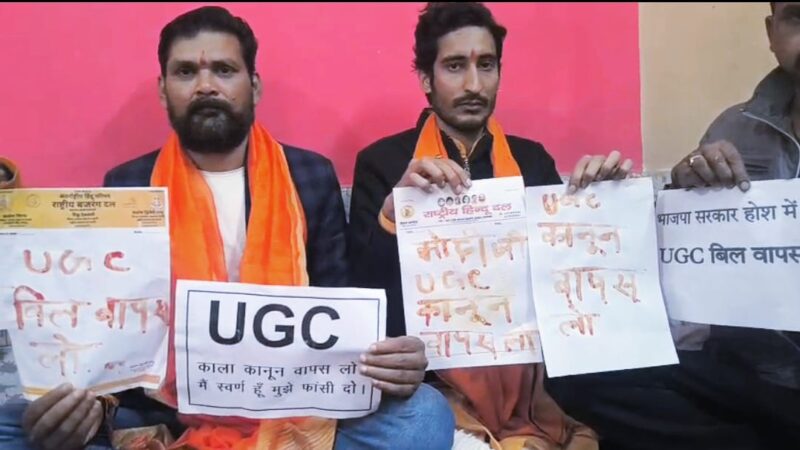 राष्ट्रीय बजरंग दल
UGC
बिल वापस
लो
UGC
काला कानून वापस लो
मैं स्वर्ण हूँ मुझे फांसी दो।
राष्ट्रीय हिन्दू दल
मोदी जी
UGC
कानून
वापस लो
UGC
कानून
वापस
लो
भाजपा सरकार होश में
UGC बिल वापस